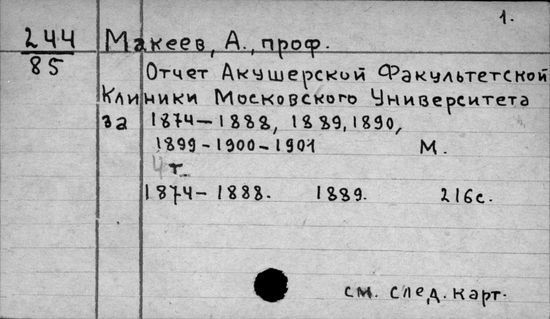 1.
244 Макеев, А., проф.
85
Отчет Акушерской Факультетской
Клиники Московского Университета
за 1874-1888, 1889, 1890,
1899-1900-1901 М.
4 т.
1874-1888. 1889. 216с.
см. след. карт.